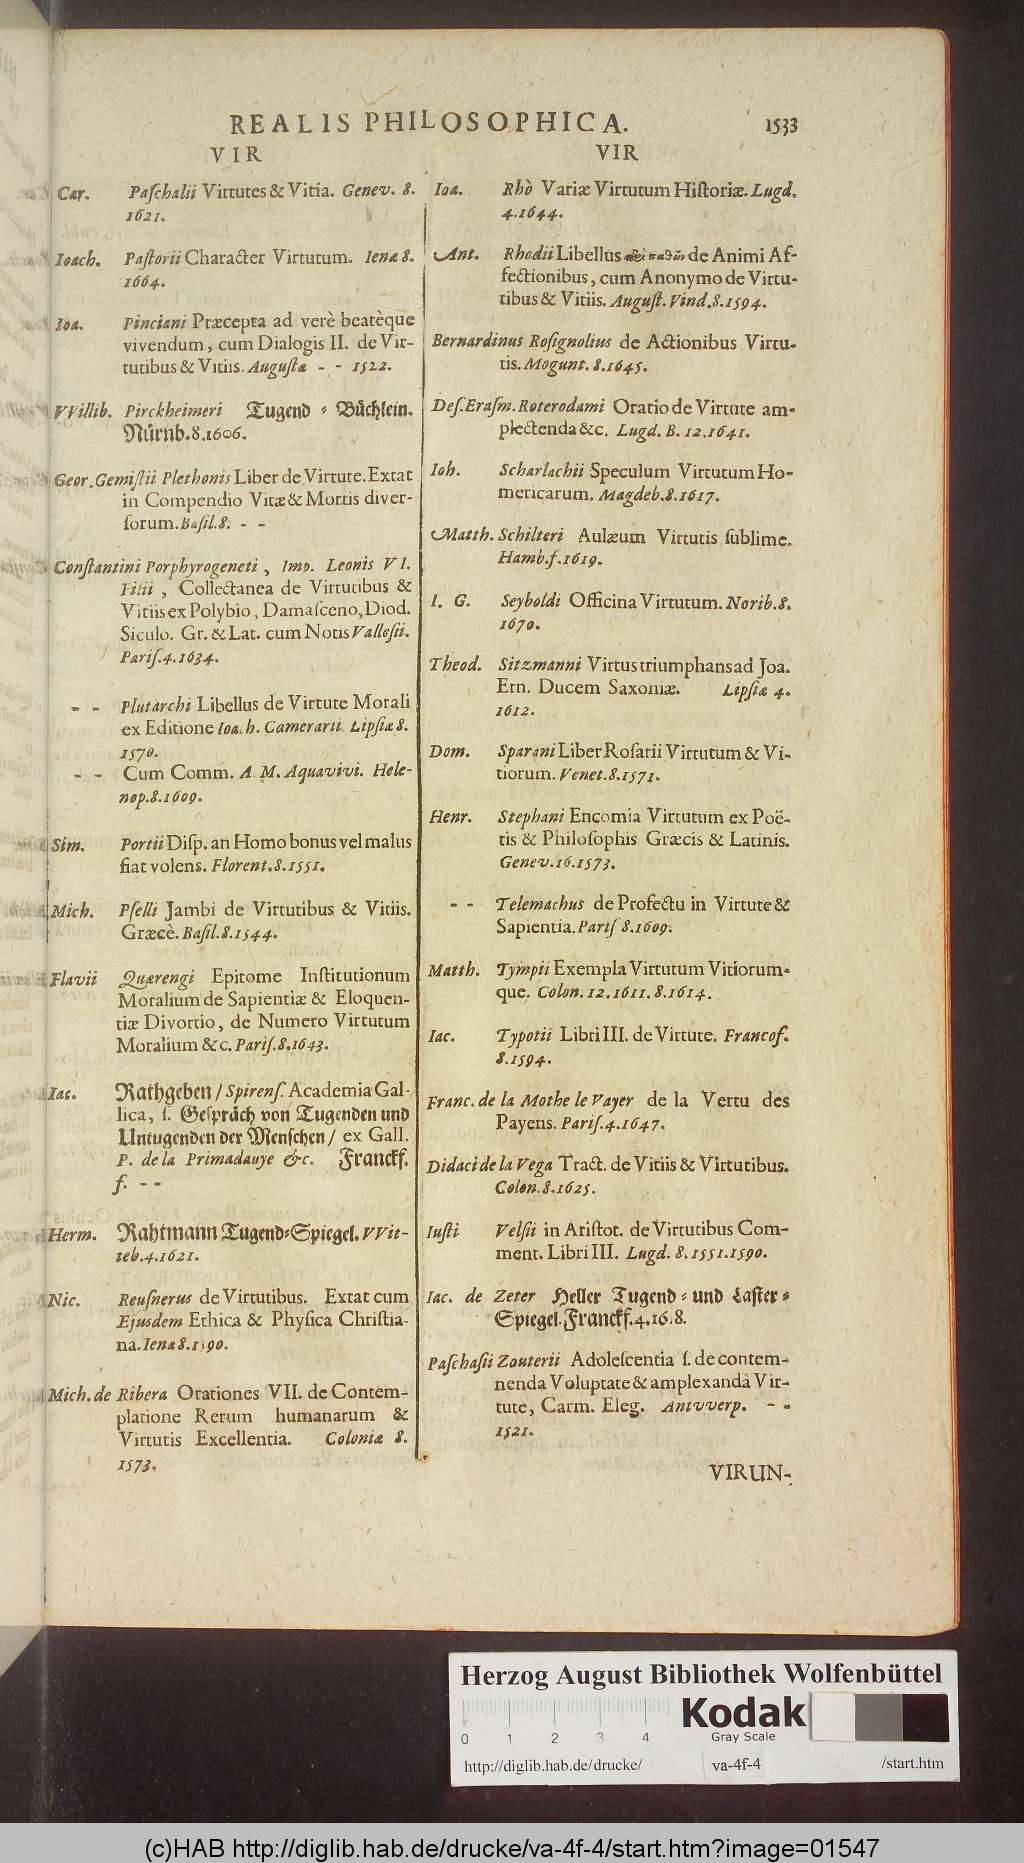 REALIS PHILOSOPHICA. 1533
VIR
Car. Paſchalii Virtutes & Vitia. Genev. 8.
1621.
Ioach. Paſtorii Character Virtutum. Ienæ 8.
1664.
Ioa. Pinciani Præcepta ad verè beatèque
vivendum, cum Dialogis II. de Vir-
tutibus & Vitiis. Auguſtæ - - 1522.
VVillib. Pirckheimeri Tugend-Büchlein.
Nürnb. 8. 1606.
Geor. Gemiſtii Plethonis Liber de Virtute. Extat
in Compendio Vitæ & Mortis diver-
ſorum. Baſil. 8. - -
Conſtantini Porphyrogeneti, Imp. Leonis VI.
Filii, Collectanea de Virtutibus &
Vitiis ex Polybio, Damaſceno, Diod.
Siculo. Gr. & Lat. cum Notis Valleſii.
Pariſ. 4. 1634.
- - Plutarchi Libellus de Virtute Morali
ex Editione Ioa. h. Camerarii. Lipſiæ 8.
1570.
- - Cum Comm. A. M. Aquavivi. Hele-
nop. 8. 1609.
Sim. Portii Diſp. an Homo bonus vel malus
fiat volens. Florent. 8. 1551.
Mich. Pſelli Jambi de Virtutibus & Vitiis.
Græcè. Baſil. 8. 1544.
Flavii Quærengi Epitome Inſtitutionum
Moralium de Sapientiæ & Eloquen-
tiæ Divortio, de Numero Virtutum
Moralium &c. Pariſ. 8. 1643.
Iac. Rathgeben / Spirenſ. Academia Gal-
lica, ſ. Geſpräch von Tugenden und
Untugenden der Menſchen / ex Gall.
P. de la Primadauye &c. Franckf.
f. - -
Herm. Rahtmann Tugend-Spiegel. VVit-
teb. 4. 1621.
Nic. Reuſnerus de Virtutibus. Extat cum
Ejusdem Ethica & Phyſica Chriſtia-
na. Ienæ 8. 1590.
Mich. de Ribera Orationes VII. de Contem-
platione Rerum humanarum &
Virtutis Excellentia. Coloniæ 8.
1573.
VIR
Ioa. Rhò Variæ Virtutum Hiſtoriæ. Lugd.
4. 1644.
Ant. Rhodii Libellus de Animi Af-
fectionibus, cum Anonymo de Virtu-
tibus & Vitiis. Auguſt. Vind. 8. 1594.
Bernardinus Roſignolius de Actionibus Virtu-
tis. Mogunt. 8. 1645.
Deſ. Eraſm. Roterodami Oratio de Virtute am-
plectenda &c. Lugd. B. 12. 1641.
Ioh. Scharlachii Speculum Virtutum Ho-
mericarum. Magdeb. 8. 1617.
Matth. Schilteri Aulæum Virtutis ſublime.
Hamb. f. 1619.
I. G. Seyboldi Officina Virtutum. Norib. 8.
1670.
Theod. Sitzmanni Virtus triumphans ad Joa.
Ern. Ducem Saxoniæ. Lipſiæ 4.
1612.
Dom. Sparani Liber Roſarii Virtutum & Vi-
tiorum. Venet. 8. 1571.
Henr. Stephani Encomia Virtutum ex Poë-
tis & Philoſophis Græcis & Latinis.
Genev. 16. 1573.
- - Telemachus de Profectu in Virtute &
Sapientia. Pariſ 8. 1609.
Matth. Tympii Exempla Virtutum Vitiorum-
que. Colon. 12. 1611. 8. 1614.
Iac. Typotii Libri III. de Virtute. Francof.
8. 1594.
Franc. de la Mothe le Vayer de la Vertu des
Payens. Pariſ. 4. 1647.
Didaci de la Vega Tract. de Vitiis & Virtutibus.
Colon. 8. 1625.
Iuſti Velſii in Ariſtot. de Virtutibus Com-
ment. Libri III. Lugd. 8. 1551. 1590.
Iac. de Zeter Heller Tugend- und Laſter-
Spiegel. Franckf. 4. 16. 8.
Paſchaſii Zouterii Adoleſcentia ſ. de contem-
nenda Voluptate & amplexanda Vir-
tute, Carm. Eleg. Antvverp. - -
1521.
VIRUN-
Herzog August Bibliothek Wolfenbüttel
Kodak
Gray Scale
0 1 2 3 4
http://diglib.hab.de/drucke/ va-4f-4 /start.htm
(c)HAB http://diglib.hab.de/drucke/va-4f-4/start.htm?image=01547